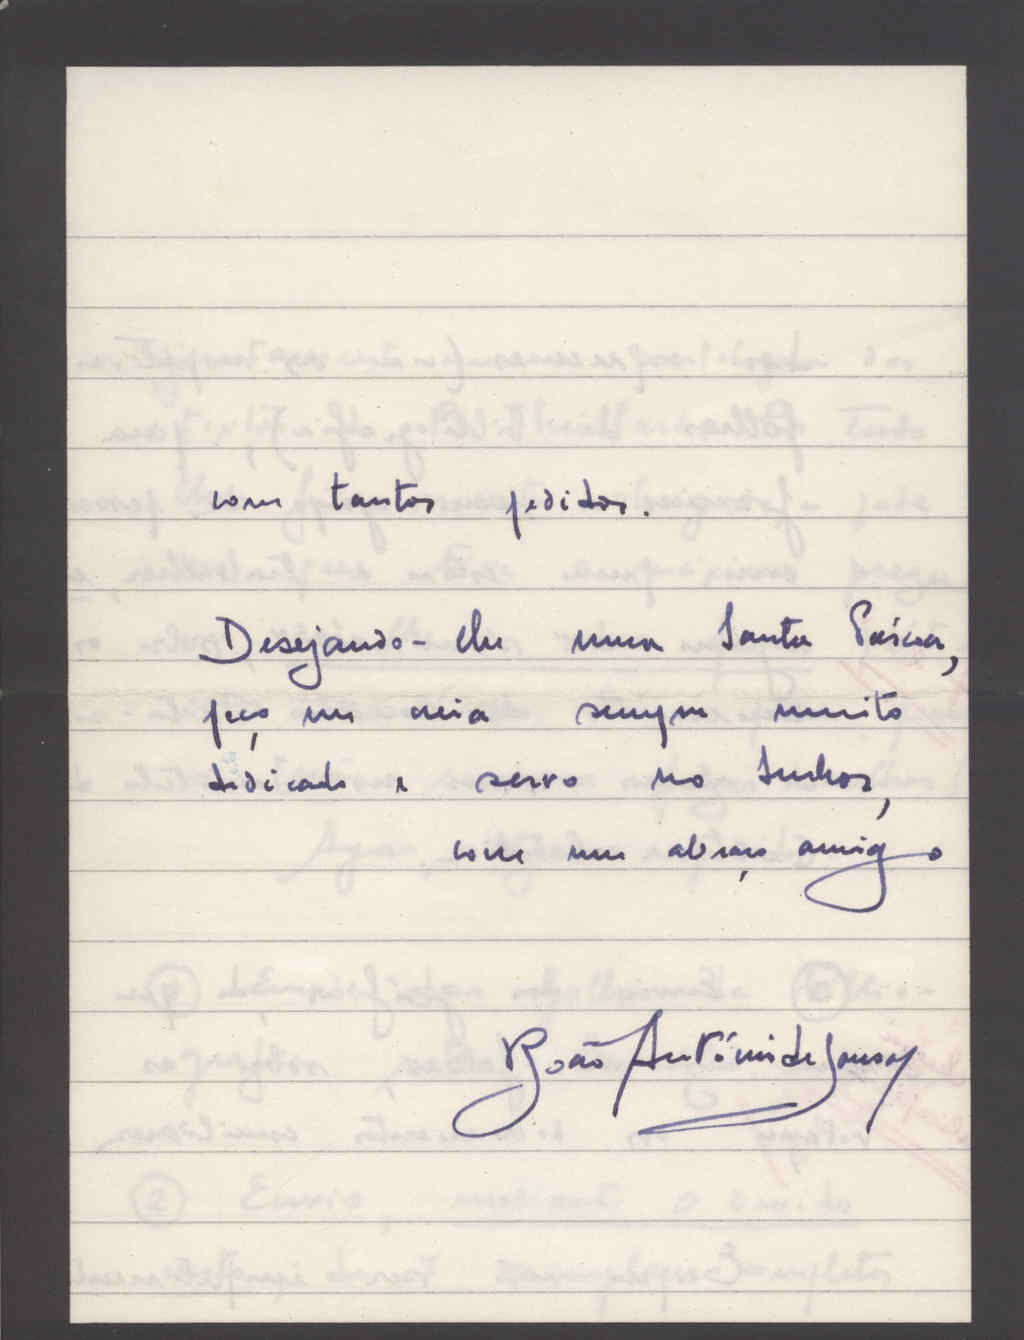 com tantos pedidos.
Desejando-lhe uma Santa Páscoa,
peço me creia sempre muito
dedicado e servo no Senhor,
com um abraço amigo
João António de Sousa